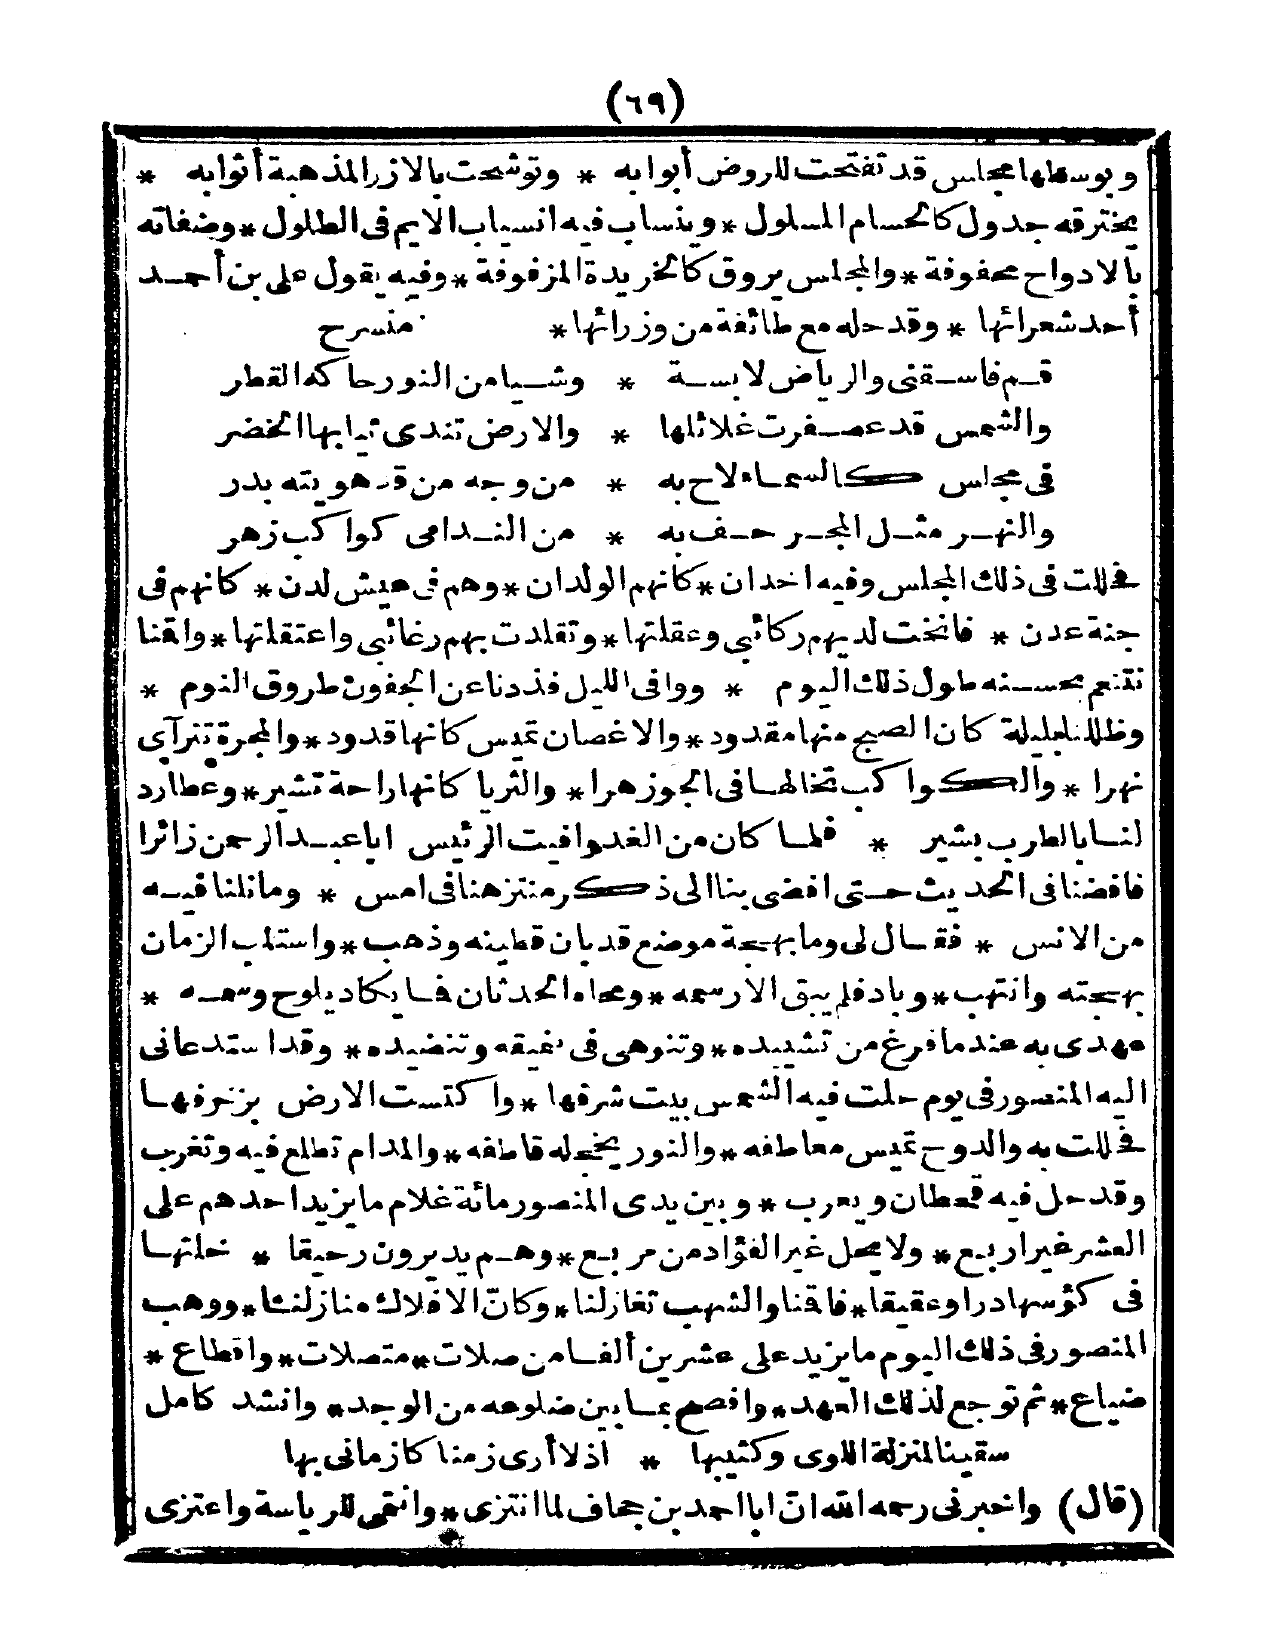 (٦٩)
وبوسطها مجلس قد تفتحت للروض أبوابه * وتوشحت بالازر المذهبة أثوابه *
يخترقه جدول كالحسام المسلول * وينساب فيه انسياب الايم فى الطلول * وضفاته
بالادواح محفوفة * والمجلس يروق كالخريدة المزفوفة * وفيه يقول على بن أحمد
أحد شعرائها * وقد حله مع طائفة من وزرائها * منسرح
قم فاسقنى والرياض لابسة * وشيا من النور حاكه القطر
والشمس قد عصفرت غلائلها * والارض تندى ثيابها الخضر
فى مجلس كالسماء لاح به * من وجه من قد هويته بدر
والنهر مثل المجر حف به * من الندامى كواكب زهر
فحللت فى ذلك المجلس وفيه اخدان * كانهم الولدان * وهم فى عيش لدن * كانهم فى
جنة عدن * فانخت لديهم ركائبى وعقلتها * وتقلدت بهم رغائبى واعتقلتها * واقنا
نتنعم بحسنه طول ذلك اليوم * ووافى الليل فذدنا عن الجفون طروق النوم *
وظللنا بليلة كان الصبح منها مقدود * والاغصان تميس كانها قدود * والمجرة تتراآى
نهرا * والكواكب تخالها فى الجو زهرا * والثريا كانها راحة تشير * وعطارد
لنا بالطرب بشير * فلما كان من الغد وافيت الرئيس ابا عبد الرحمن زائرا
فافضنا فى الحديث حتى افضى بنا الى ذكر منتزهنا فى امس * وما نلنا فيه
من الانس * فقال لى وما بهجة موضع قد بان قطينه وذهب * واستلب الزمان
بهجته وانتهب * وباد فلم يبق الا رسمه * ومحاه الحدثان فما يكاد يلوح وسمه *
عهدى به عندما فرغ من تشييده * وتنوهى فى تنميقه وتنضيده * وقد استدعانى
اليه المنصور فى يوم حلت فيه الشمس بيت شرفها * واكتست الارض بزخرفها
فحللت به والدوح تميس معاطفه * والنور يخجله قاطفه * والمدام تطلع فيه وتغرب
وقد حل فيه قحطان ويعرب * وبين يدى المنصور مائة غلام ما يزيد احدهم على
العشر غير اربع * ولا يحل غير الفؤاد من مربع * وهم يديرون رحيقا * خلتها
فى كؤسها درا وعقيقا * فاقنا والشهب تغازلنا * وكانّ الافلاك منازلنا * ووهب
المنصور فى ذلك اليوم ما يزيد على عشرين ألفا من صلات * متصلات * واقطاع *
ضياع * ثم توجع لذلك العهد * وافصح بما بين ضلوعه من الوجد * وانشد كامل
سقيا لمنزلة اللوى وكثيبها * اذ لا أرى زمنا كازمانى بها
(قال) واخبرنى رحمه الله انّ ابا احمد بن جحاف لما انتزى * وانتمى للرياسة واعتزى